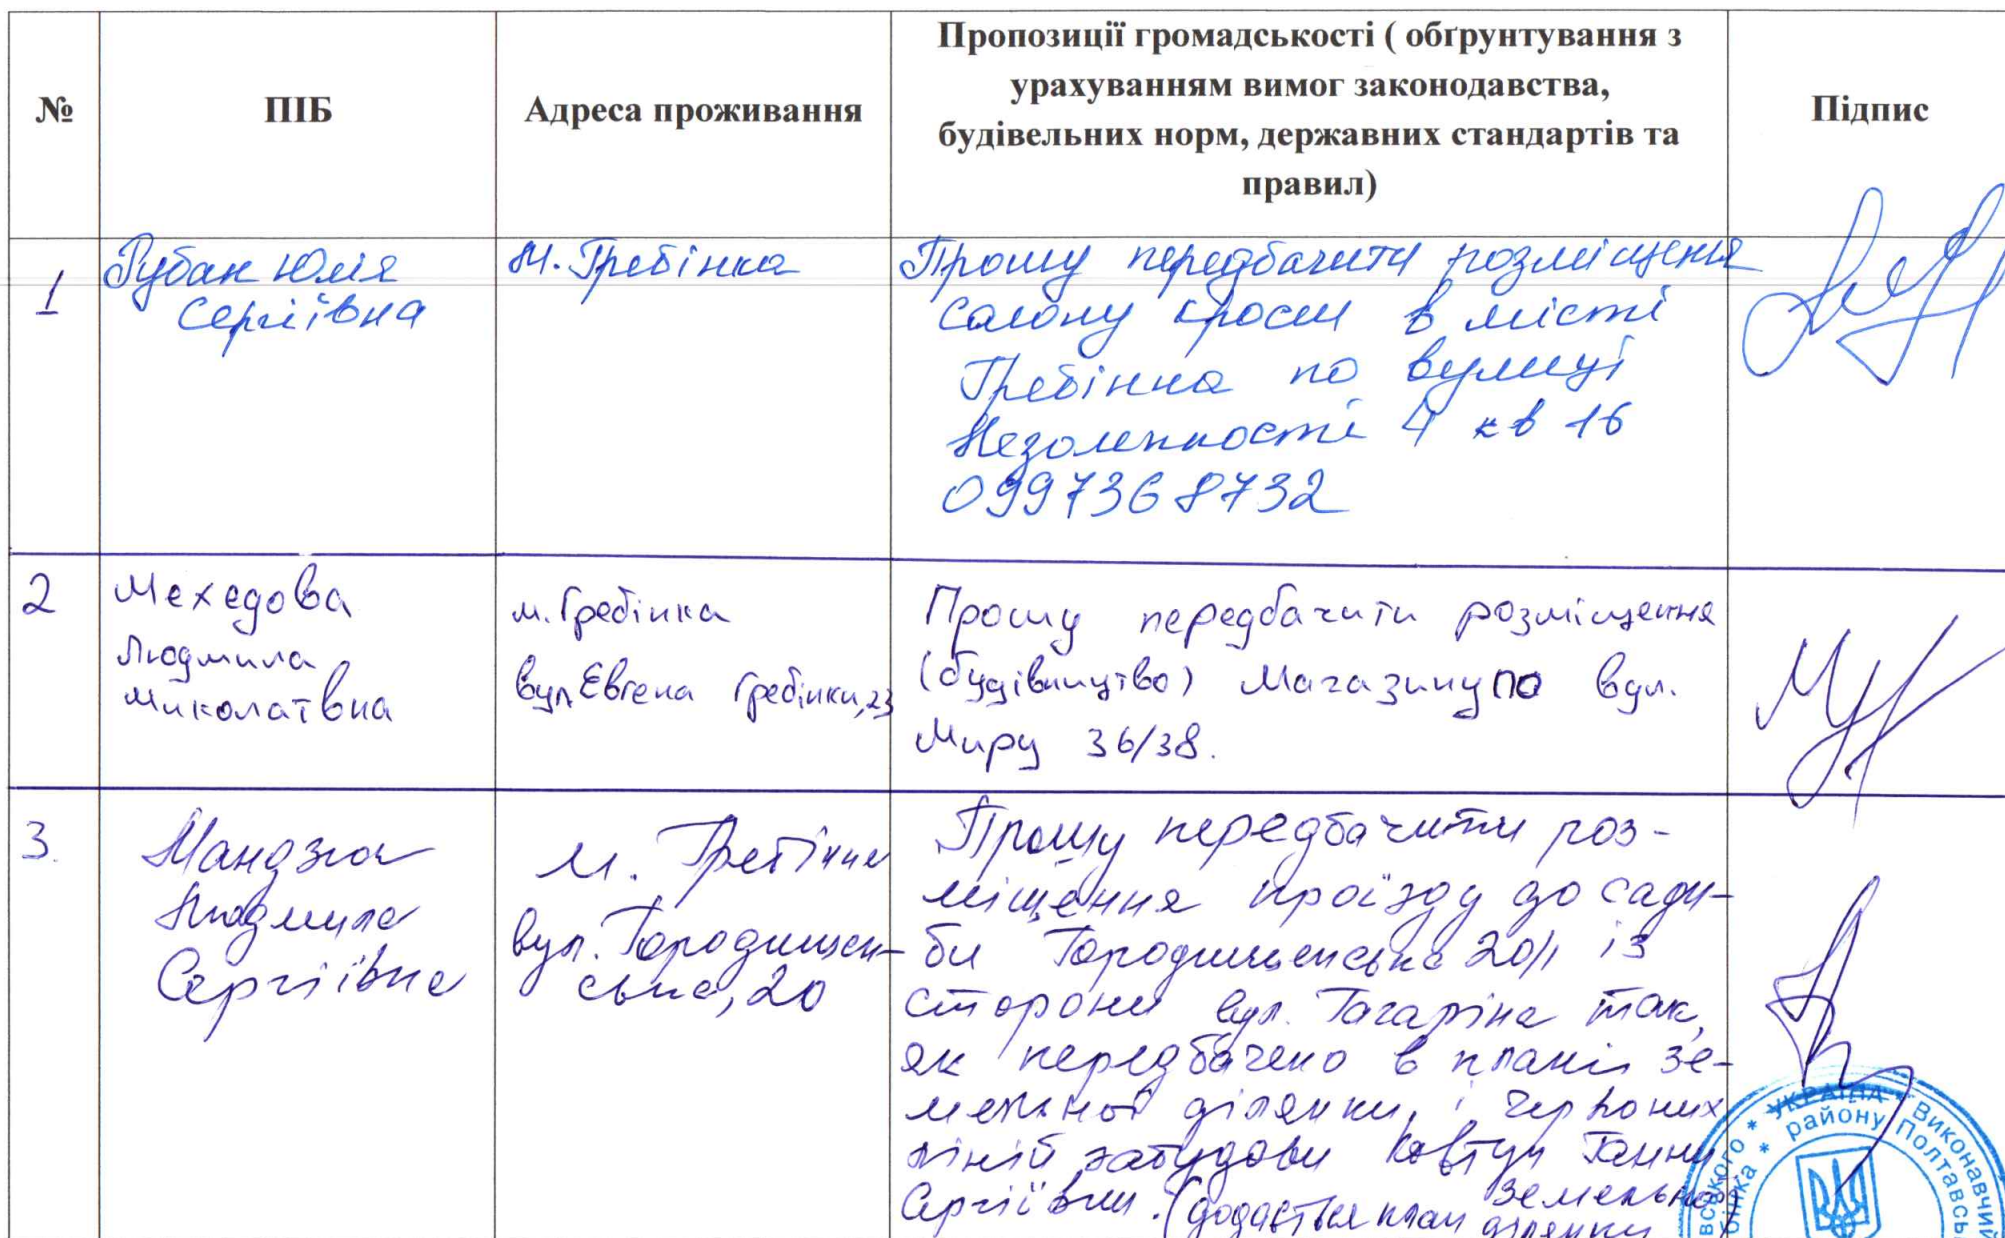 №
ПІБ
Адреса проживання
Пропозиції громадськості ( обґрунтування з
урахуванням вимог законодавства,
будівельних норм, державних стандартів та
правил)
Підпис
1
Рубан Юлія
Сергіївна
М. Гребінка
Прошу передбачити розміщення
салону краси в місті
Гребінка по вулиці
Незалежності 4 кв 16
0997368732
2
Мехедова
Людмила
Миколаївна
м. Гребінка
вул Євгена Гребінки, 23
Прошу передбачити розміщення
(будівництво) Магазину по вул.
Миру 36/38.
3.
Мандзюк
Людмила
Сергіївна
м. Гребінка
вул. Городищен-
ська, 20
Прошу передбачити роз-
міщення проїзду до сади-
би Городищенська 20/1 із
сторони вул. Гагаріна так,
як передбачено в плані зе-
мельної ділянки, і червоних
ліній забудови Ковтун Ганни
Сергіївни. (додається план земельної
ділянки)
УКРАЇНА * Виконавчий
району Полтавсь